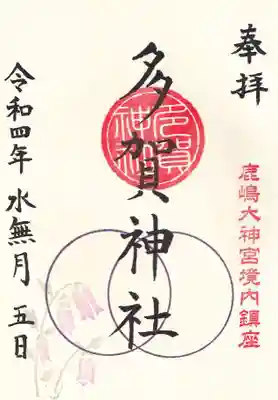 奉拝
鹿嶋大神宮境内鎮座
多賀神社
多賀神社
令和四年 水無月 五日